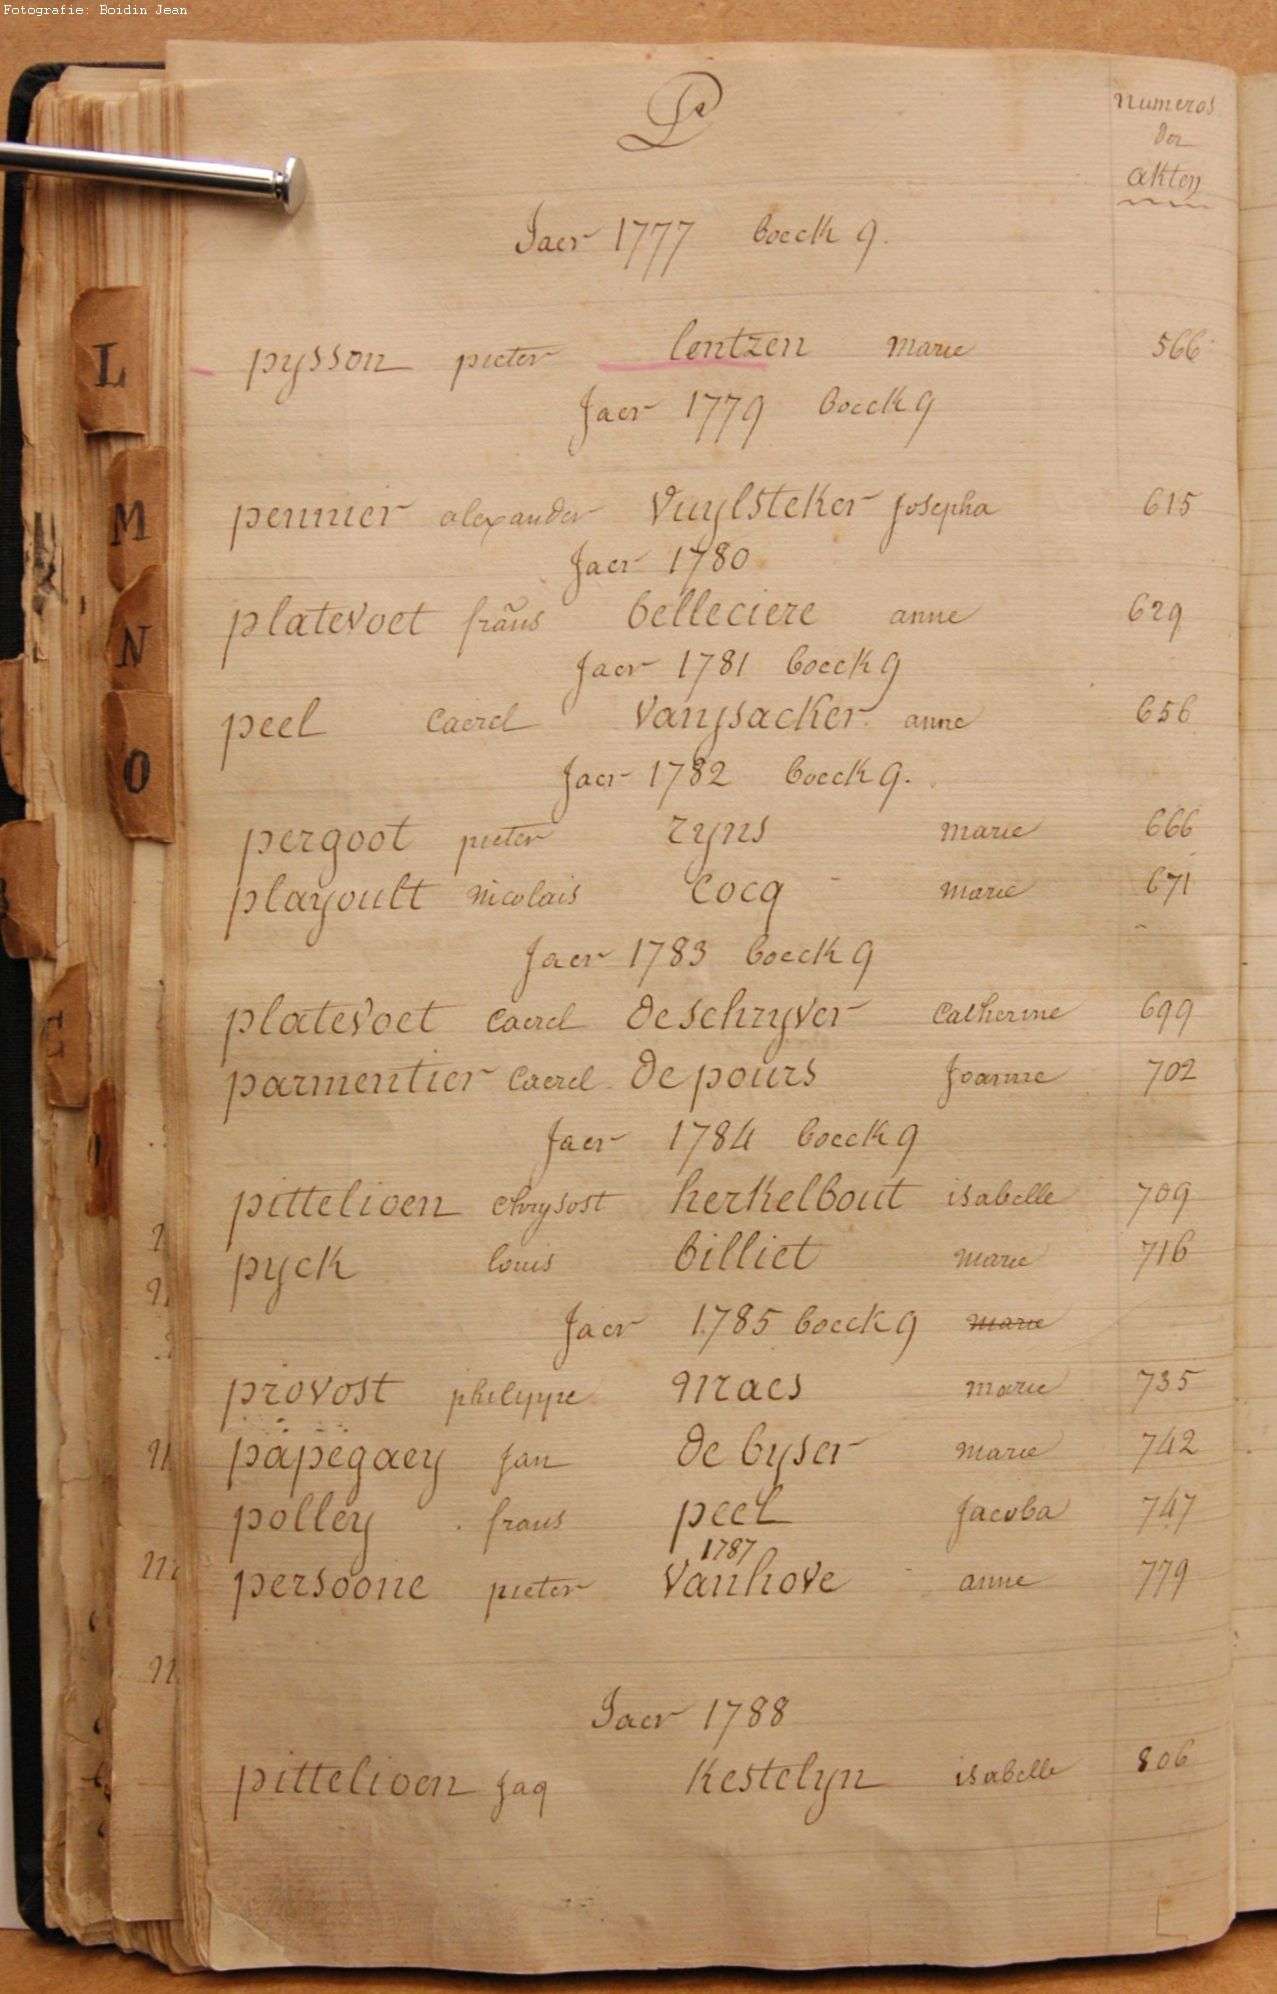 Fotografie: Boidin Jean
P
numeros
der
akten
Jaer 1777 boeck 9.
pysson pieter lentzen marie 566
Jaer 1779 boeck 9
pennier alexander vuylsteker Josepha 615
Jaer 1780
platevoet frans belleciere anne 629
Jaer 1781 boeck 9
peel Caerel vanysacker anne 656
Jaer 1782 boeck 9.
pergoot pieter ryns marie 666
playoult nicolais Cocq marie 671
Jaer 1783 boeck 9
platevoet Caerel de schryver Catherine 699
parmentier Caerel de pours Joanne 702
Jaer 1784 boeck 9
pittelioen Chrysost herkelbout isabelle 709
pyck louis billiet marie 716
Jaer 1785 boeck 9 marie
provost philippe maes marie 735
papegaey Jan de byser marie 742
polley frans peel Jacoba 747
1787
persoone pieter vanhove anne 779
Jaer 1788
pittelioen Jaq Kestelyn isabelle 806
L
M
N
O